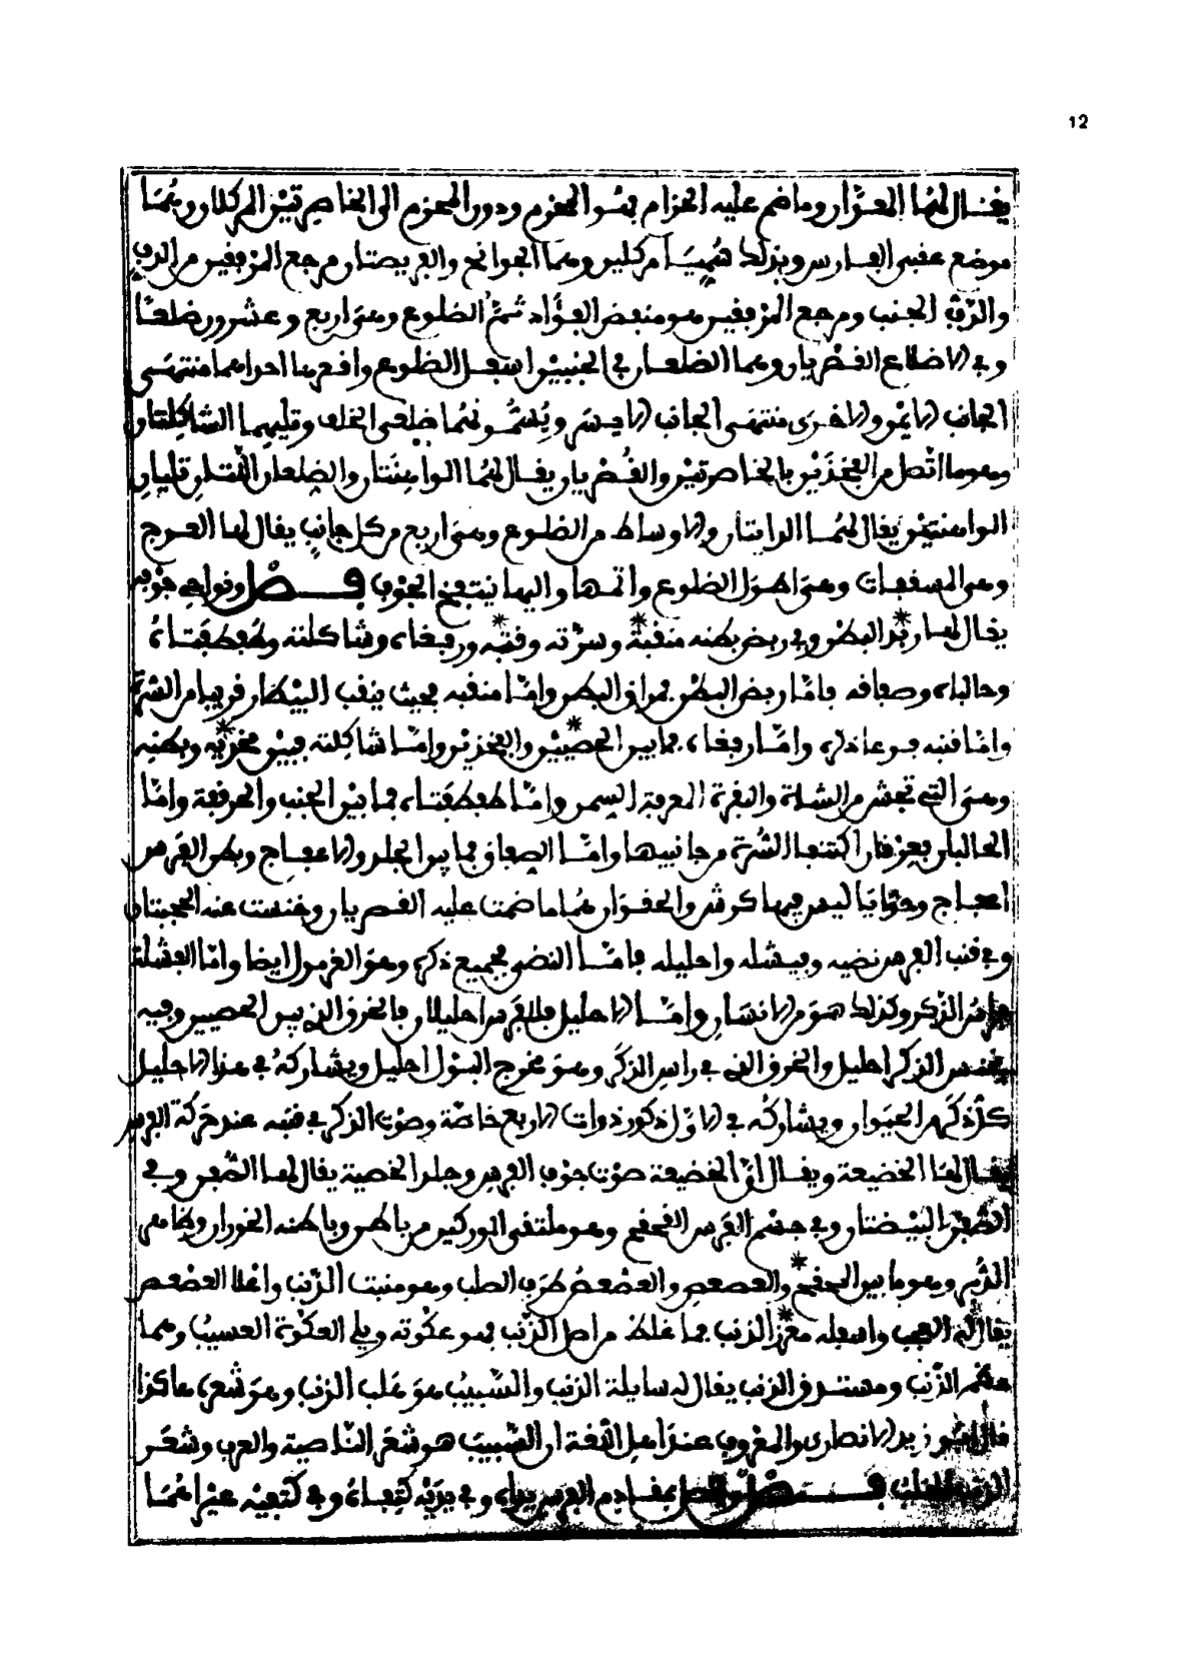 12
يقال لهما العذاران وما ضم عليه الحزام فهو المحزم ودون المحزم الى الخاصرتين المركلان وهما
موضع عقبي الفارس وبذلك سميا مركلين وهما الجوانح والفريصتان مرجع المرفقين من الدف
والدف الجنب ومرجع المرفقين هو منبض الفؤاد ثم الضلوع وهي اربع وعشرون ضلعا
وفي الاضلاع القصريان وهما الضلعان في الجنبين اسفل الضلوع واقصرها احداهما منتهى
الجانب الايمن والاخرى منتهى الجانب الايسر ويسمونهما ضلعي الخلف وتليهما الشاكلتان
وهو ما اتصل من الفخذين بالخاصرتين والقصريان يقال لهما الواهنتان والضلعان اللتان تليان
الواهنتين يقال لهما الدايتان والاوساط من الضلوع وهي اربع من كل جانب يقال لها العوج
وهي المسفعات وهي اطول الضلوع واتمها واليها ينتفخ الجوف فصل ونواحي جوفه
يقال لها ربد البطن وفي ربض بطنه منقبه وسرته وقنبه ورفغاه وشاكلته وطفطفتاه
وحالباه وصفاقه فاما ربض البطن فمراق البطن واما منقبه فحيث ينقب البيطار قريبا من السرة
واما قنبه فوعا ذكره واما رفغاه فما بين الخصيين والفخذين واما شاكلته فبين فخذيه وبطنه
وهي التي تجشر من الشاة والبقرة المعرفة السمن واما طفطفتاه فما بين الجنب والحرقفة واما
الحالبان فعرقان اكتنفا السرة من جانبيها واما الصفاق فما بين الجلد والاعفاج وبطن الفرس
اعفاج وحوايا ليس فيها كرش والحقوان هما ما ضمت عليه القصريان وخنست عنه الحجبتان
وفي قنب الفرس نضيه وفيشله واحليله فاما النضو فجميع ذكره وهو الغرمول ايضا واما الفيشلة
فراس الذكر وكذلك هو من الانسان واما الاحليل فللفرس احليلان فالخرق الذي بين الخصيين وفيه
يخنس الذكر احليل والخرق الذي في راس الذكر وهو مخرج البول احليل ويشاركه في هذا الاحليل
كل ذكر من الحيوان ويشاركه في الاول ذكور ذوات الاربع خاصة وصوت الذكر في قنبه عند حركة الفرس
يقال لها الخضيعة ويقال ان الخضيعة صوت جوف الفرس وجلد الخصية يقال لها الصفن وفي
الصفن البيضتان وفي جسم الفرس القحقح وهو ملتقى الوركين من باطن وباطنه الخوران وطامى
الدبر وهو ما بين القحقح والعصعص والعصعص طرف الصلب وهو منبت الذنب واعلا العصعص
يقال له العجب واسفله مغرز الذنب فما غلظ من اصل الذنب فهو عكوته ويلي العكوة العسيب وهما
عظم الذنب ومستدق الذنب يقال له سايلة الذنب والسبيب هو هلب الذنب وهو شعره هاكذا
قال ابو زيد الانصاري والمعروف عند اهل اللغة ان السبيب هو شعر الناصية والعرف وشعر
الذنب فصل مقادم الفرس يداه وفي يديه كتفاه وفي كتفيه عيراهما